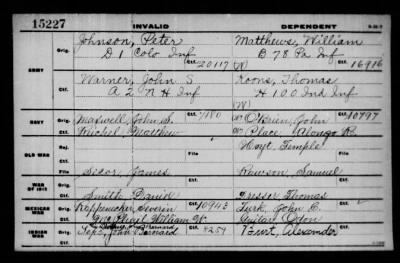 15227 INVALID DEPENDENT
Johnson, Peter Matthews, William
Orig. D 1 Colo Inf B 78 Pa Inf
Ctf. 20117 (W) Ctf. 16916
ARMY
Warner, John S Koons, Thomas
A 2 N H Inf H 100 Ind Inf
(W)
NAVY Orig. Maxwell, John S. Ctf. Orig. O'Brien, John Ctf. 10797
Michel, Matthew Place, Alonzo R.
Orig. Hoyt, Temple
OLD WAR Ctf. File
Sidor, James Rawson, Samuel
WAR OF 1812
Smith, David Tresser Thomas
MEXICAN WAR Orig. Severin Ctf. 10943 Turk, John E.
William W. Odon
INDIAN WAR Orig. John Bernard Ctf. 4259 Burt, Alexander